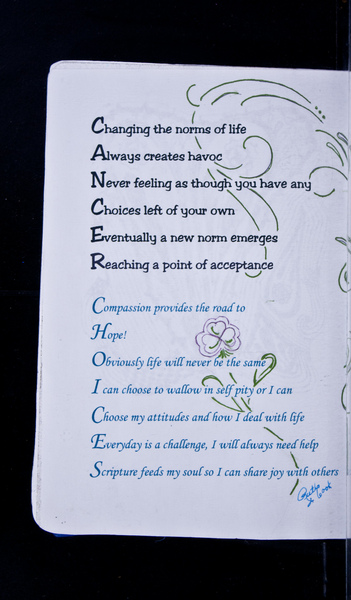 Changing the norms of life
Always creates havoc
Never feeling as though you have any
Choices left of your own
Eventually a new norm emerges
Reaching a point of acceptance
Compassion provides the road to
Hope!
Obviously life will never be the same
I can choose to wallow in self pity or I can
Choose my attitudes and how I deal with life
Everyday is a challenge, I will always need help
Scripture feeds my soul so I can share joy with others